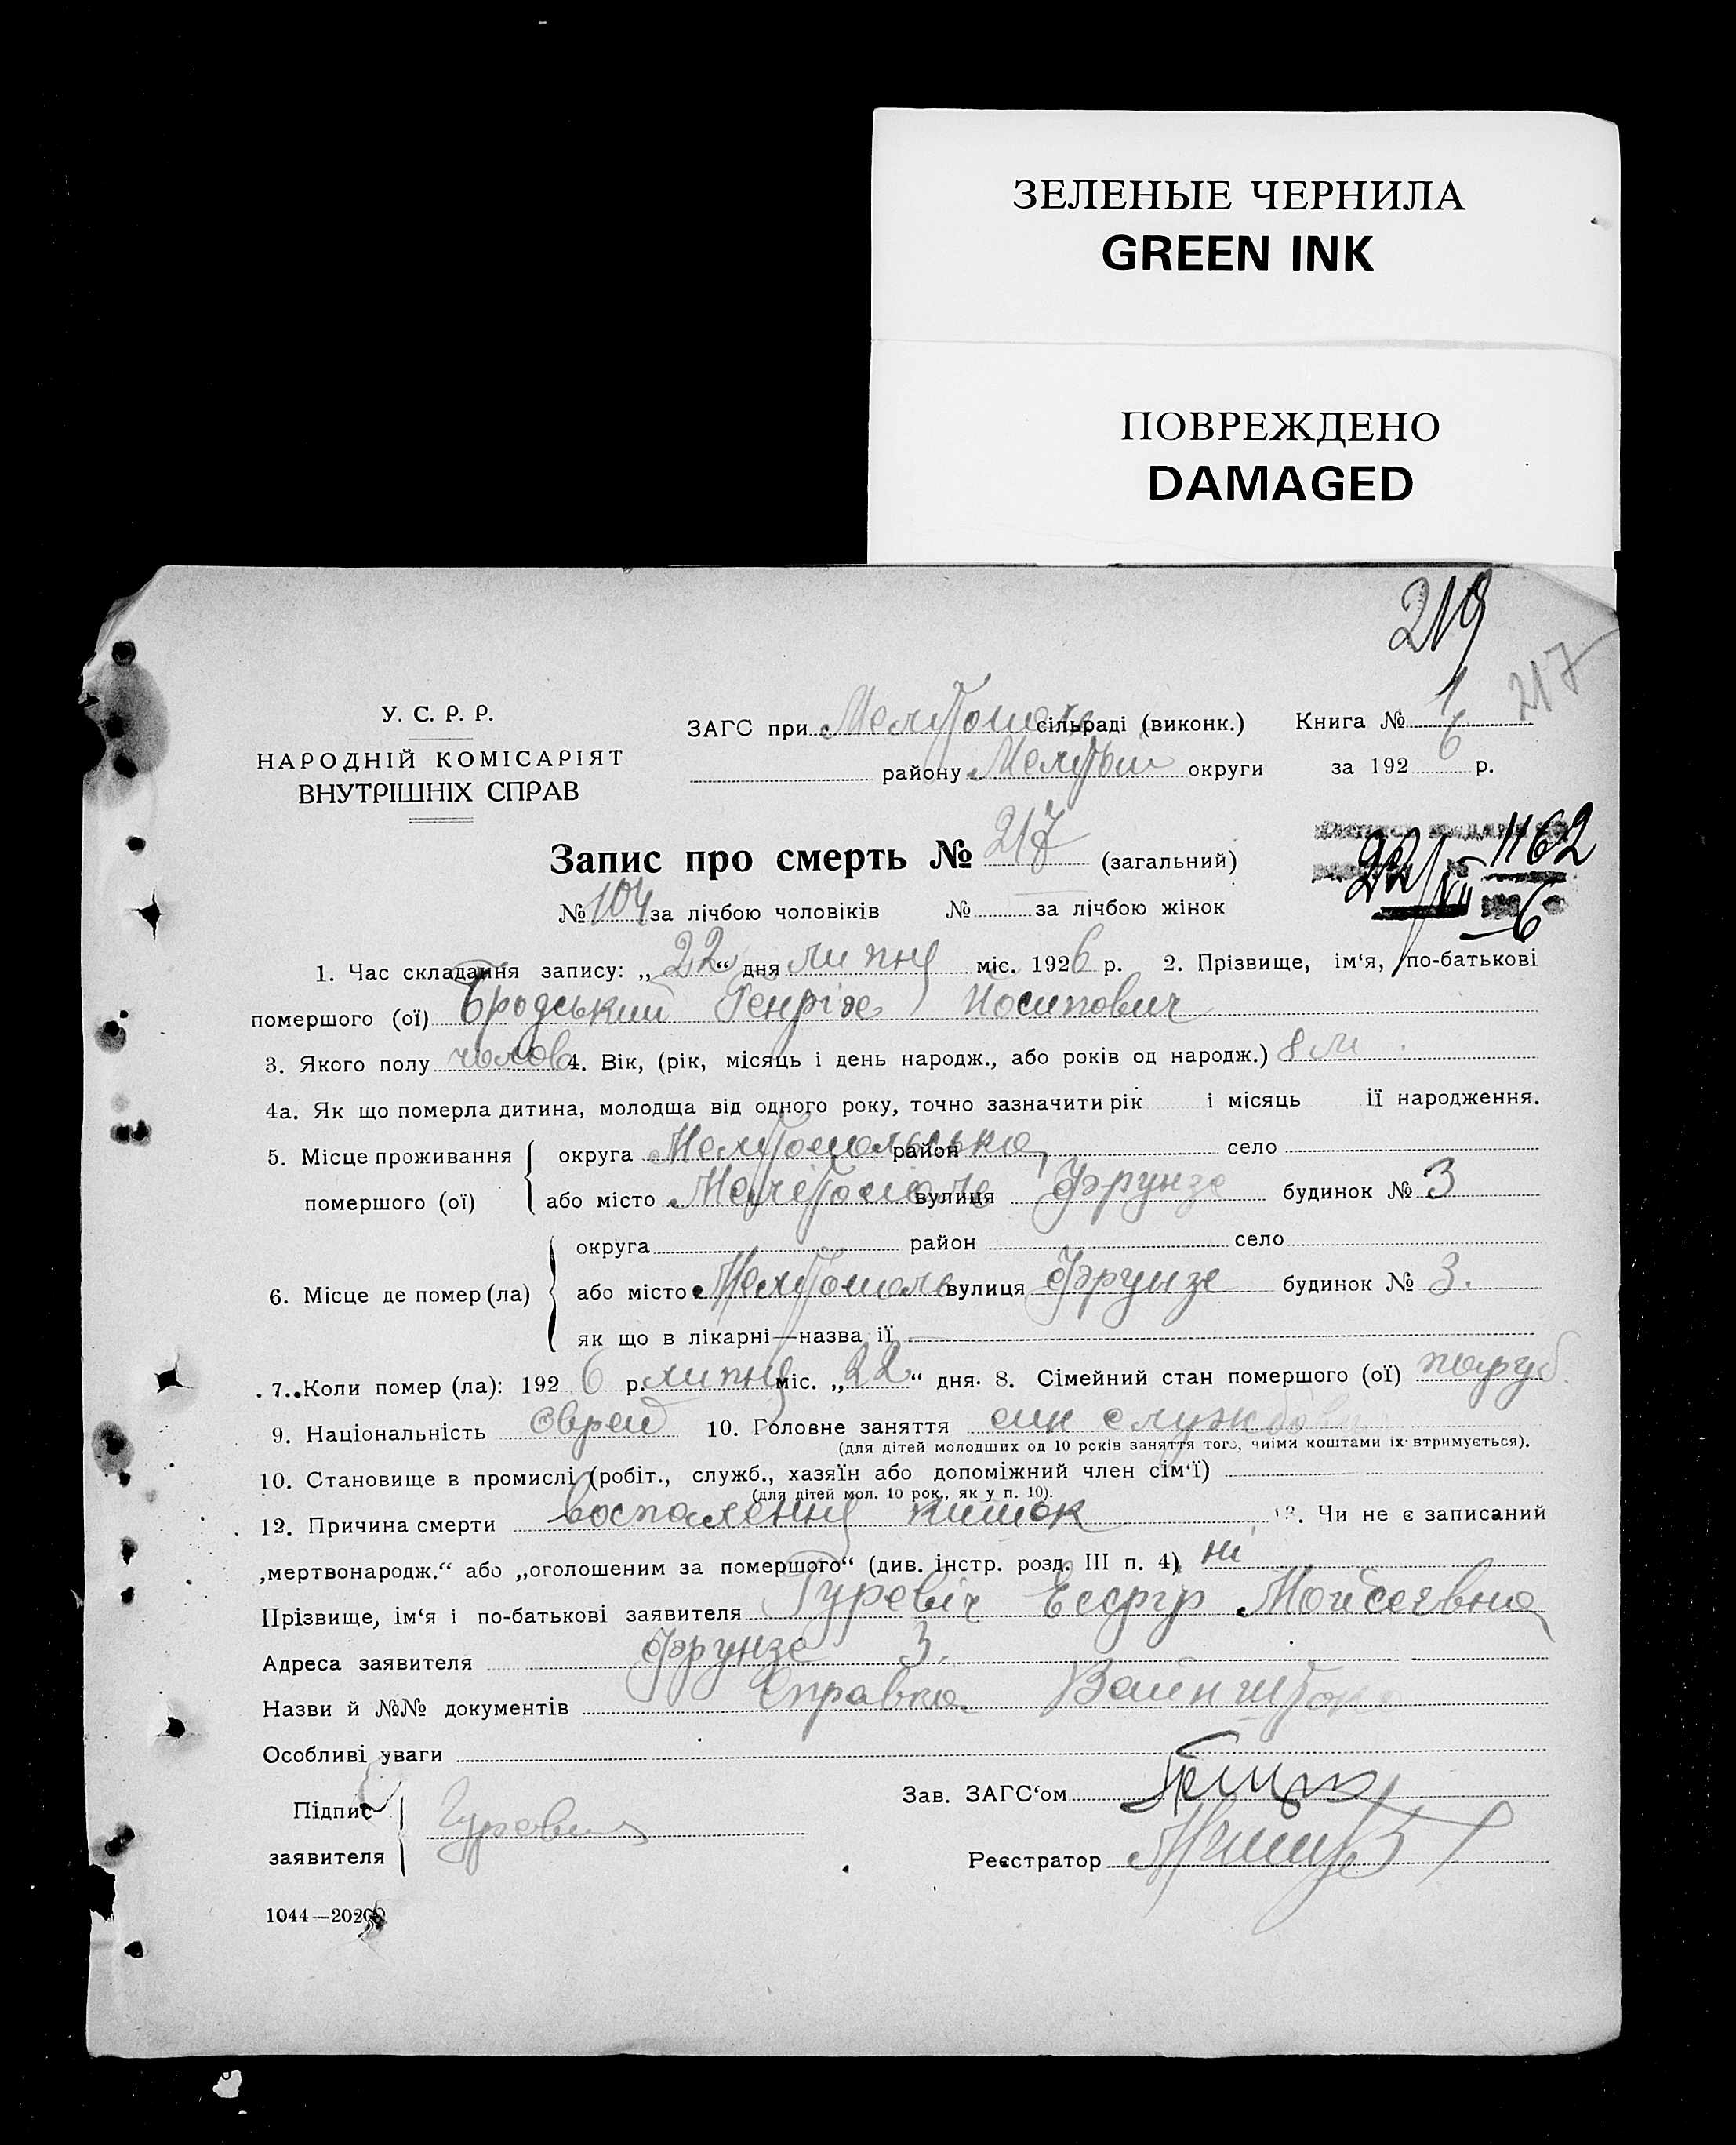 ЗЕЛЕНЫЕ ЧЕРНИЛА
GREEN INK
ПОВРЕЖДЕНО
DAMAGED
219
217
У. С. Р. Р.
НАРОДНІЙ КОМІСАРІЯТ
ВНУТРІШНІХ СПРАВ
ЗАГС при Мелітополь сільраді (виконк.) Книга № 1
району округи за 1926 р.
Запис про смерть № 217 (загальний)
22/VII № 1162
6
№ 104 за лічбою чоловіків № за лічбою жінок
1. Час складання запису: „22“ дня липня міс. 1926 р. 2. Прізвище, ім‘я, по-батькові
помершого (ої) Бродський Генріх Йосипович
3. Якого полу чолов 4. Вік, (рік, місяць і день народж., або років од народж.) 8 м.
4а. Як що померла дитина, молодща від одного року, точно зазначити рік і місяць її народження.
5. Місце проживання помершого (ої) округа Мелітопольська район село
або місто Мелітополь вулиця Фрунзе будинок № 3
6. Місце де помер (ла) округа район село
або місто Мелітополь вулиця Фрунзе будинок № 3.
як що в лікарні—назва її
7. Коли помер (ла): 1926 р. липня міс. „22“ дня. 8. Сімейний стан помершого (ої) паруб.
9. Національність єврей 10. Головне заняття син службов
(для дітей молодших од 10 років заняття того, чиїми коштами їх втримується).
10. Становище в промислі (робіт., служб., хазяїн або допоміжний член сім‘ї)
(для дітей мол. 10 рок., як у п. 10).
12. Причина смерти воспалення кишок 13. Чи не є записаний
„мертвонародж.“ або „оголошеним за помершого“ (див. інстр. розд. III п. 4) ні
Прізвище, ім‘я і по-батькові заявителя Гуревіч Есфір Мойсеевна
Адреса заявителя Фрунзе 3.
Назви й №№ документів Справка
Особливі уваги
Підпис заявителя Гуревич
Зав. ЗАГС‘ом
Реєстратор
1044—2020